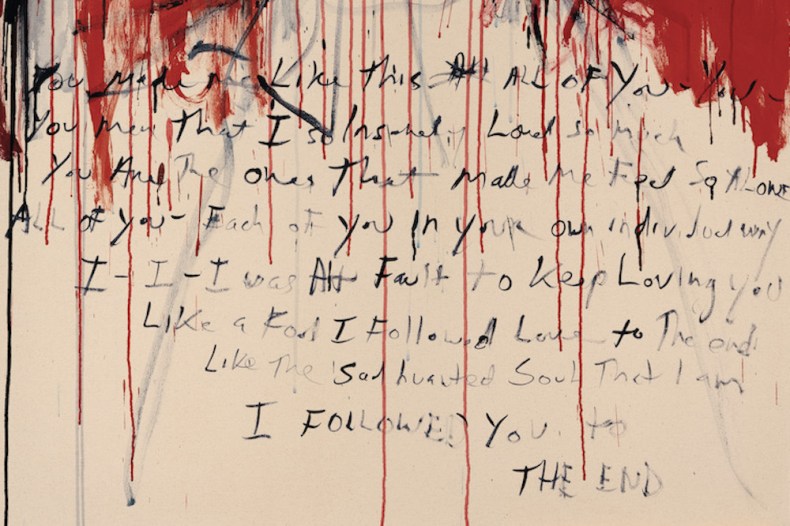 You made me Like this All ALL OF You - You -
You men That I so Insanely Loved so much
You Are The ones That made Me Feel So ALONE
ALL of you - Each of you In your own individual way
I - I - I was At Fault to Keep Loving you
Like a Fool I Followed Love to The end
Like The Sad hearted Soul That I am
I FOLLOWED You to
THE END